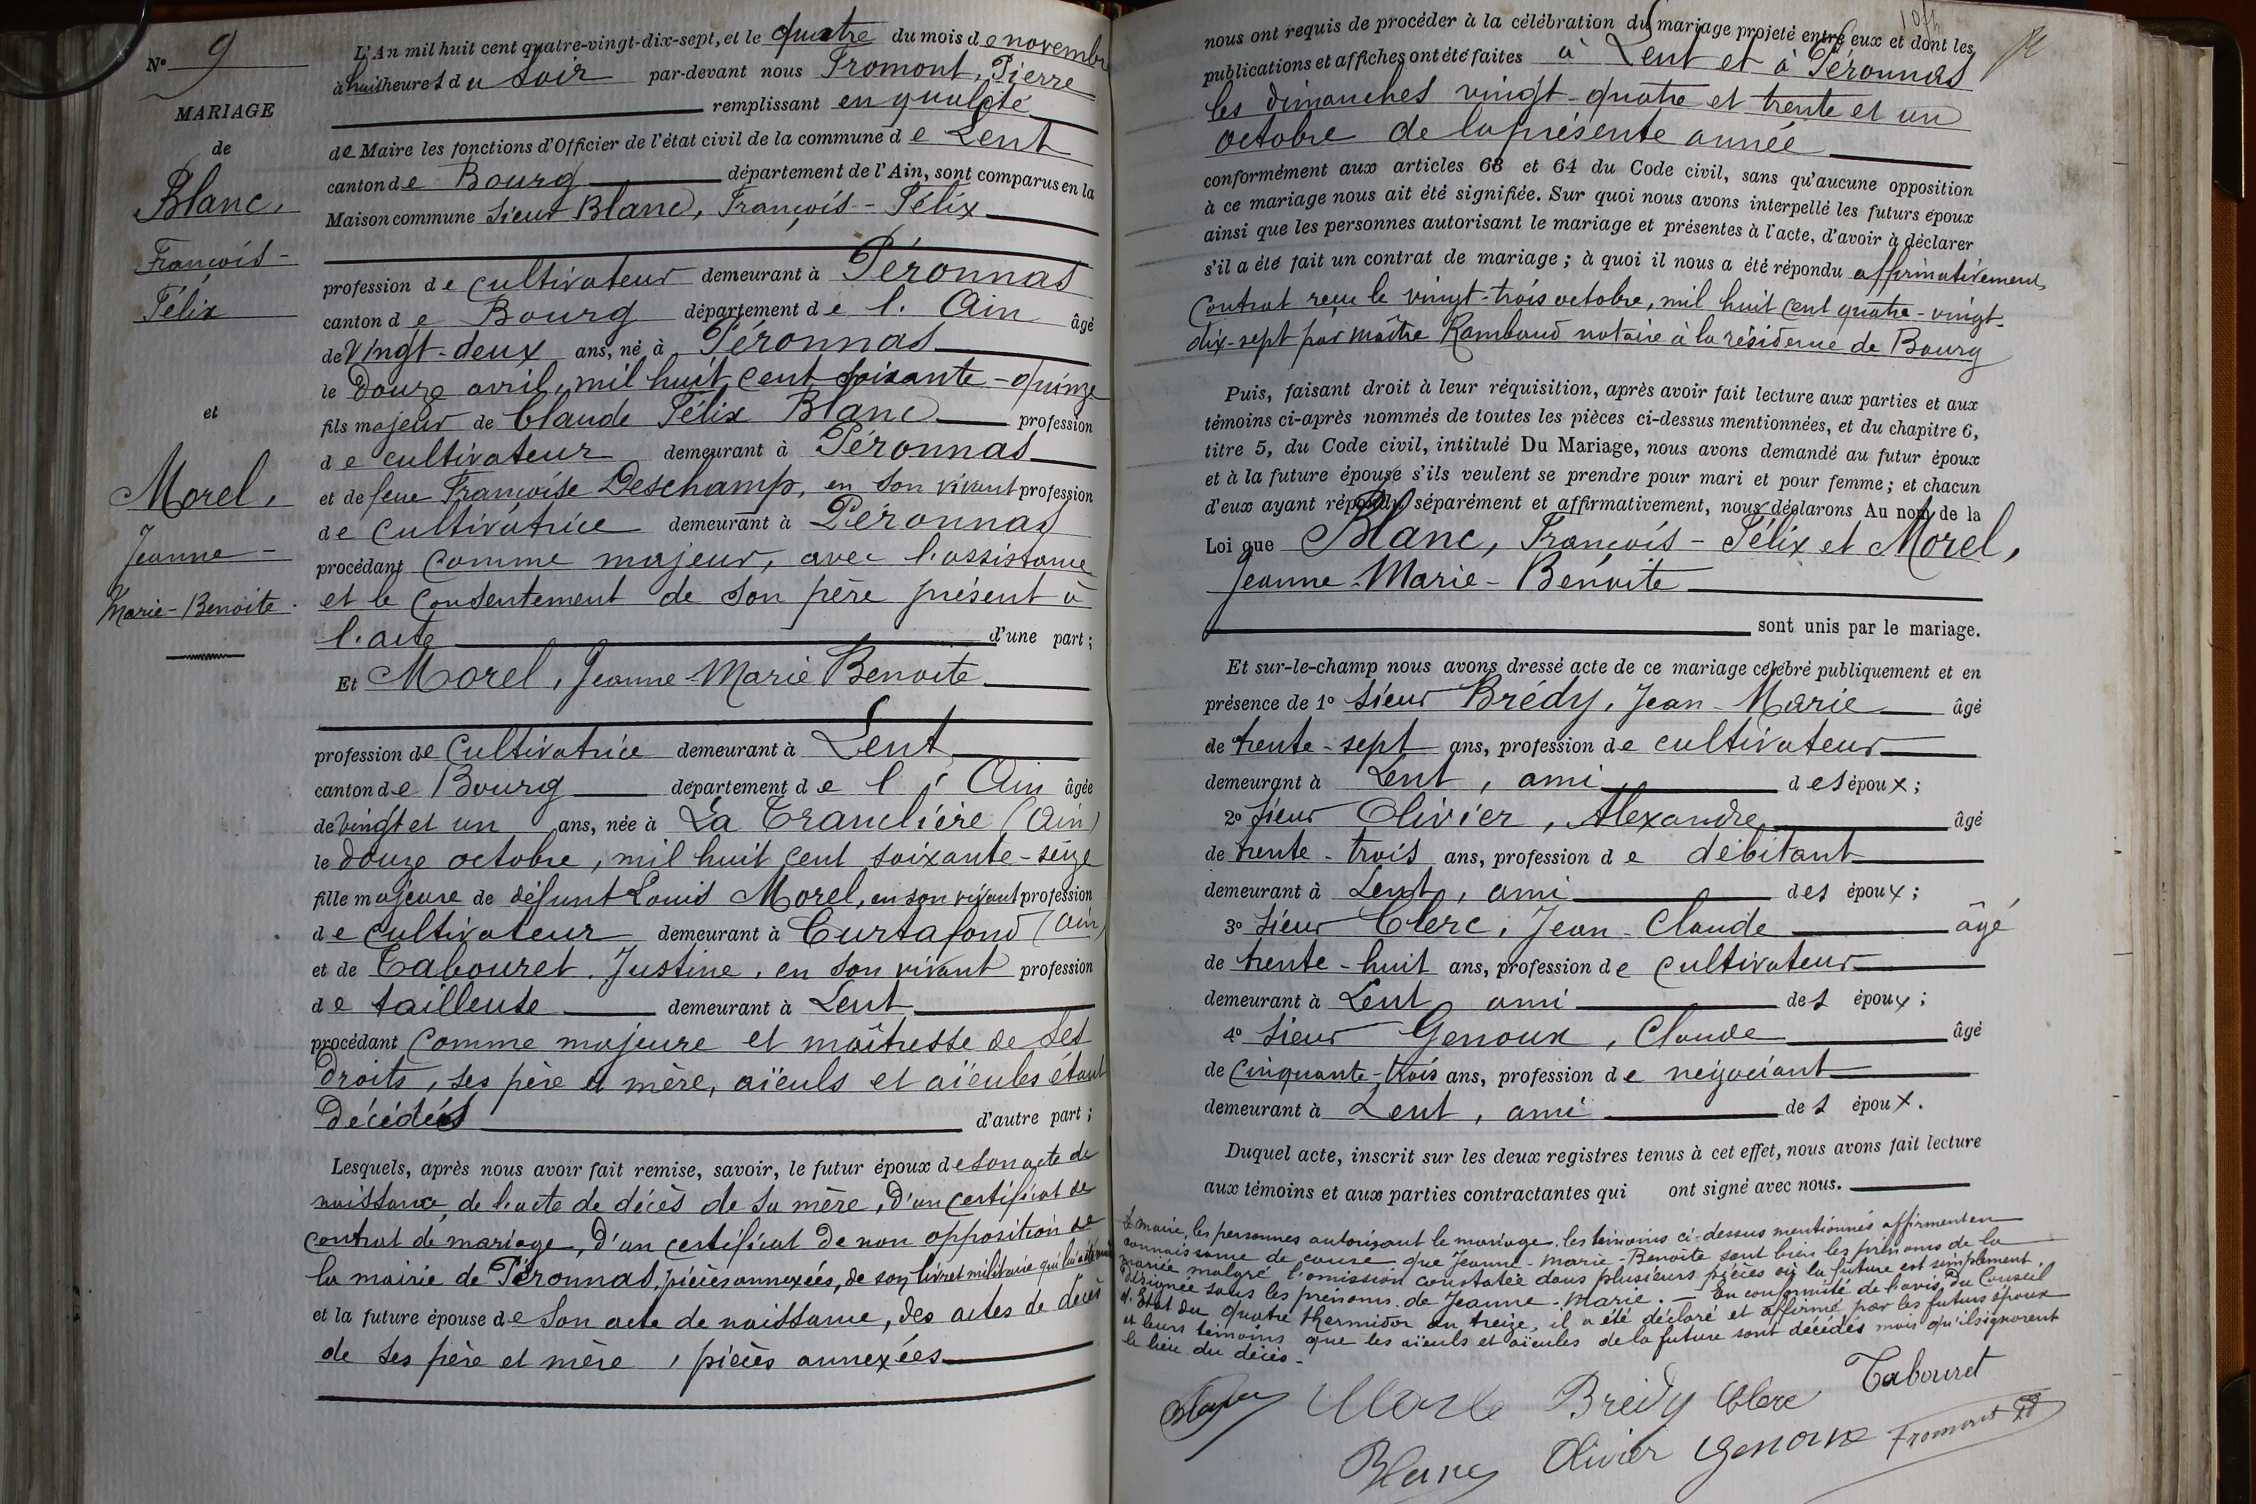 N° 9
MARIAGE
de
Blanc,
François-
Félix
et
Morel,
Jeanne-
Marie-Benoite.
L'An mil huit cent quatre-vingt-dix-sept, et le quatre du mois de novembre
à huit heures du soir par-devant nous Fromont, Pierre
remplissant en qualité
de Maire les fonctions d'Officier de l'état civil de la commune de Lent
canton de Bourg département de l'Ain, sont comparus en la
Maison commune sieur Blanc, François-Félix
profession de cultivateur demeurant à Péronnas
canton de Bourg département de l'Ain âgé
de vingt-deux ans, né à Péronnas
le douze avril, mil huit cent soixante-quinze
fils majeur de Claude Félix Blanc profession
de cultivateur demeurant à Péronnas
et de feue Françoise Deschamp, en son vivant profession
de cultivatrice demeurant à Péronnas
procédant comme majeur, avec l'assistance
et le consentement de son père présent à
l'acte d'une part;
Et Morel, Jeanne-Marie Benoite
profession de cultivatrice demeurant à Lent
canton de Bourg département de l'Ain âgée
de vingt et un ans, née à La Tranclière (Ain)
le douze octobre, mil huit cent soixante-seize
fille majeure de défunt Louis Morel, en son vivant profession
de cultivateur demeurant à Curtafond (Ain)
et de Tabouret. Justine, en son vivant profession
de tailleuse demeurant à Lent
procédant comme majeure et maîtresse de ses
droits, ses père et mère, aïeuls et aïeules étant
décédés d'autre part;
Lesquels, après nous avoir fait remise, savoir, le futur époux de son acte de
naissance, de l'acte de décès de sa mère, d'un certificat de
contrat de mariage, d'un certificat de non opposition de
la mairie de Péronnas, pièces annexées, de son livret militaire qui lui a été
et la future épouse de son acte de naissance, des actes de décès
de ses père et mère, pièces annexées
nous ont requis de procéder à la célébration du mariage projeté entre eux et dont les
publications et affiches ont été faites à Lent et à Péronnas
les dimanches vingt-quatre et trente et un
octobre de la présente année
conformément aux articles 63 et 64 du Code civil, sans qu'aucune opposition
à ce mariage nous ait été signifiée. Sur quoi nous avons interpellé les futurs époux
ainsi que les personnes autorisant le mariage et présentes à l'acte, d'avoir à déclarer
s'il a été fait un contrat de mariage; à quoi il nous a été répondu affirmativement,
Contrat reçu le vingt-trois octobre, mil huit cent quatre-vingt-
dix-sept par maître Rambaud notaire à la résidence de Bourg
Puis, faisant droit à leur réquisition, après avoir fait lecture aux parties et aux
témoins ci-après nommés de toutes les pièces ci-dessus mentionnées, et du chapitre 6,
titre 5, du Code civil, intitulé Du Mariage, nous avons demandé au futur époux
et à la future épouse s'ils veulent se prendre pour mari et pour femme; et chacun
d'eux ayant répondu séparément et affirmativement, nous déclarons Au nom de la
Loi que Blanc, François-Félix et Morel,
Jeanne-Marie-Benoite
sont unis par le mariage.
Et sur-le-champ nous avons dressé acte de ce mariage célébré publiquement et en
présence de 1° sieur Brédy, Jean-Marie âgé
de trente-sept ans, profession de cultivateur
demeurant à Lent, ami des époux;
2° sieur Olivier, Alexandre âgé
de trente-trois ans, profession de débitant
demeurant à Lent, ami des époux;
3° sieur Clerc, Jean-Claude âgé
de trente-huit ans, profession de cultivateur
demeurant à Lent ami des époux;
4° sieur Genoux, Claude âgé
de cinquante-trois ans, profession de négociant
demeurant à Lent, ami des époux.
Duquel acte, inscrit sur les deux registres tenus à cet effet, nous avons fait lecture
aux témoins et aux parties contractantes qui ont signé avec nous.
Le maire, les personnes autorisant le mariage, les témoins ci-dessus mentionnés affirment en
connaissance de cause que Jeanne-Marie-Benoîte sont bien les prénoms de la
mariée malgré l'omission constatée dans plusieurs pièces où la future est simplement
désignée sous les prénoms de Jeanne-Marie. — En conformité de l'avis du Conseil
d'Etat du quatre thermidor an treize, il a été déclaré et affirmé par les futurs époux
et leurs témoins que les aïeuls et aïeules de la future sont décédés mais qu'ils ignorent
le lieu du décès.
Brédy Clerc Tabouret
Blanc Olivier Genoux Fromont